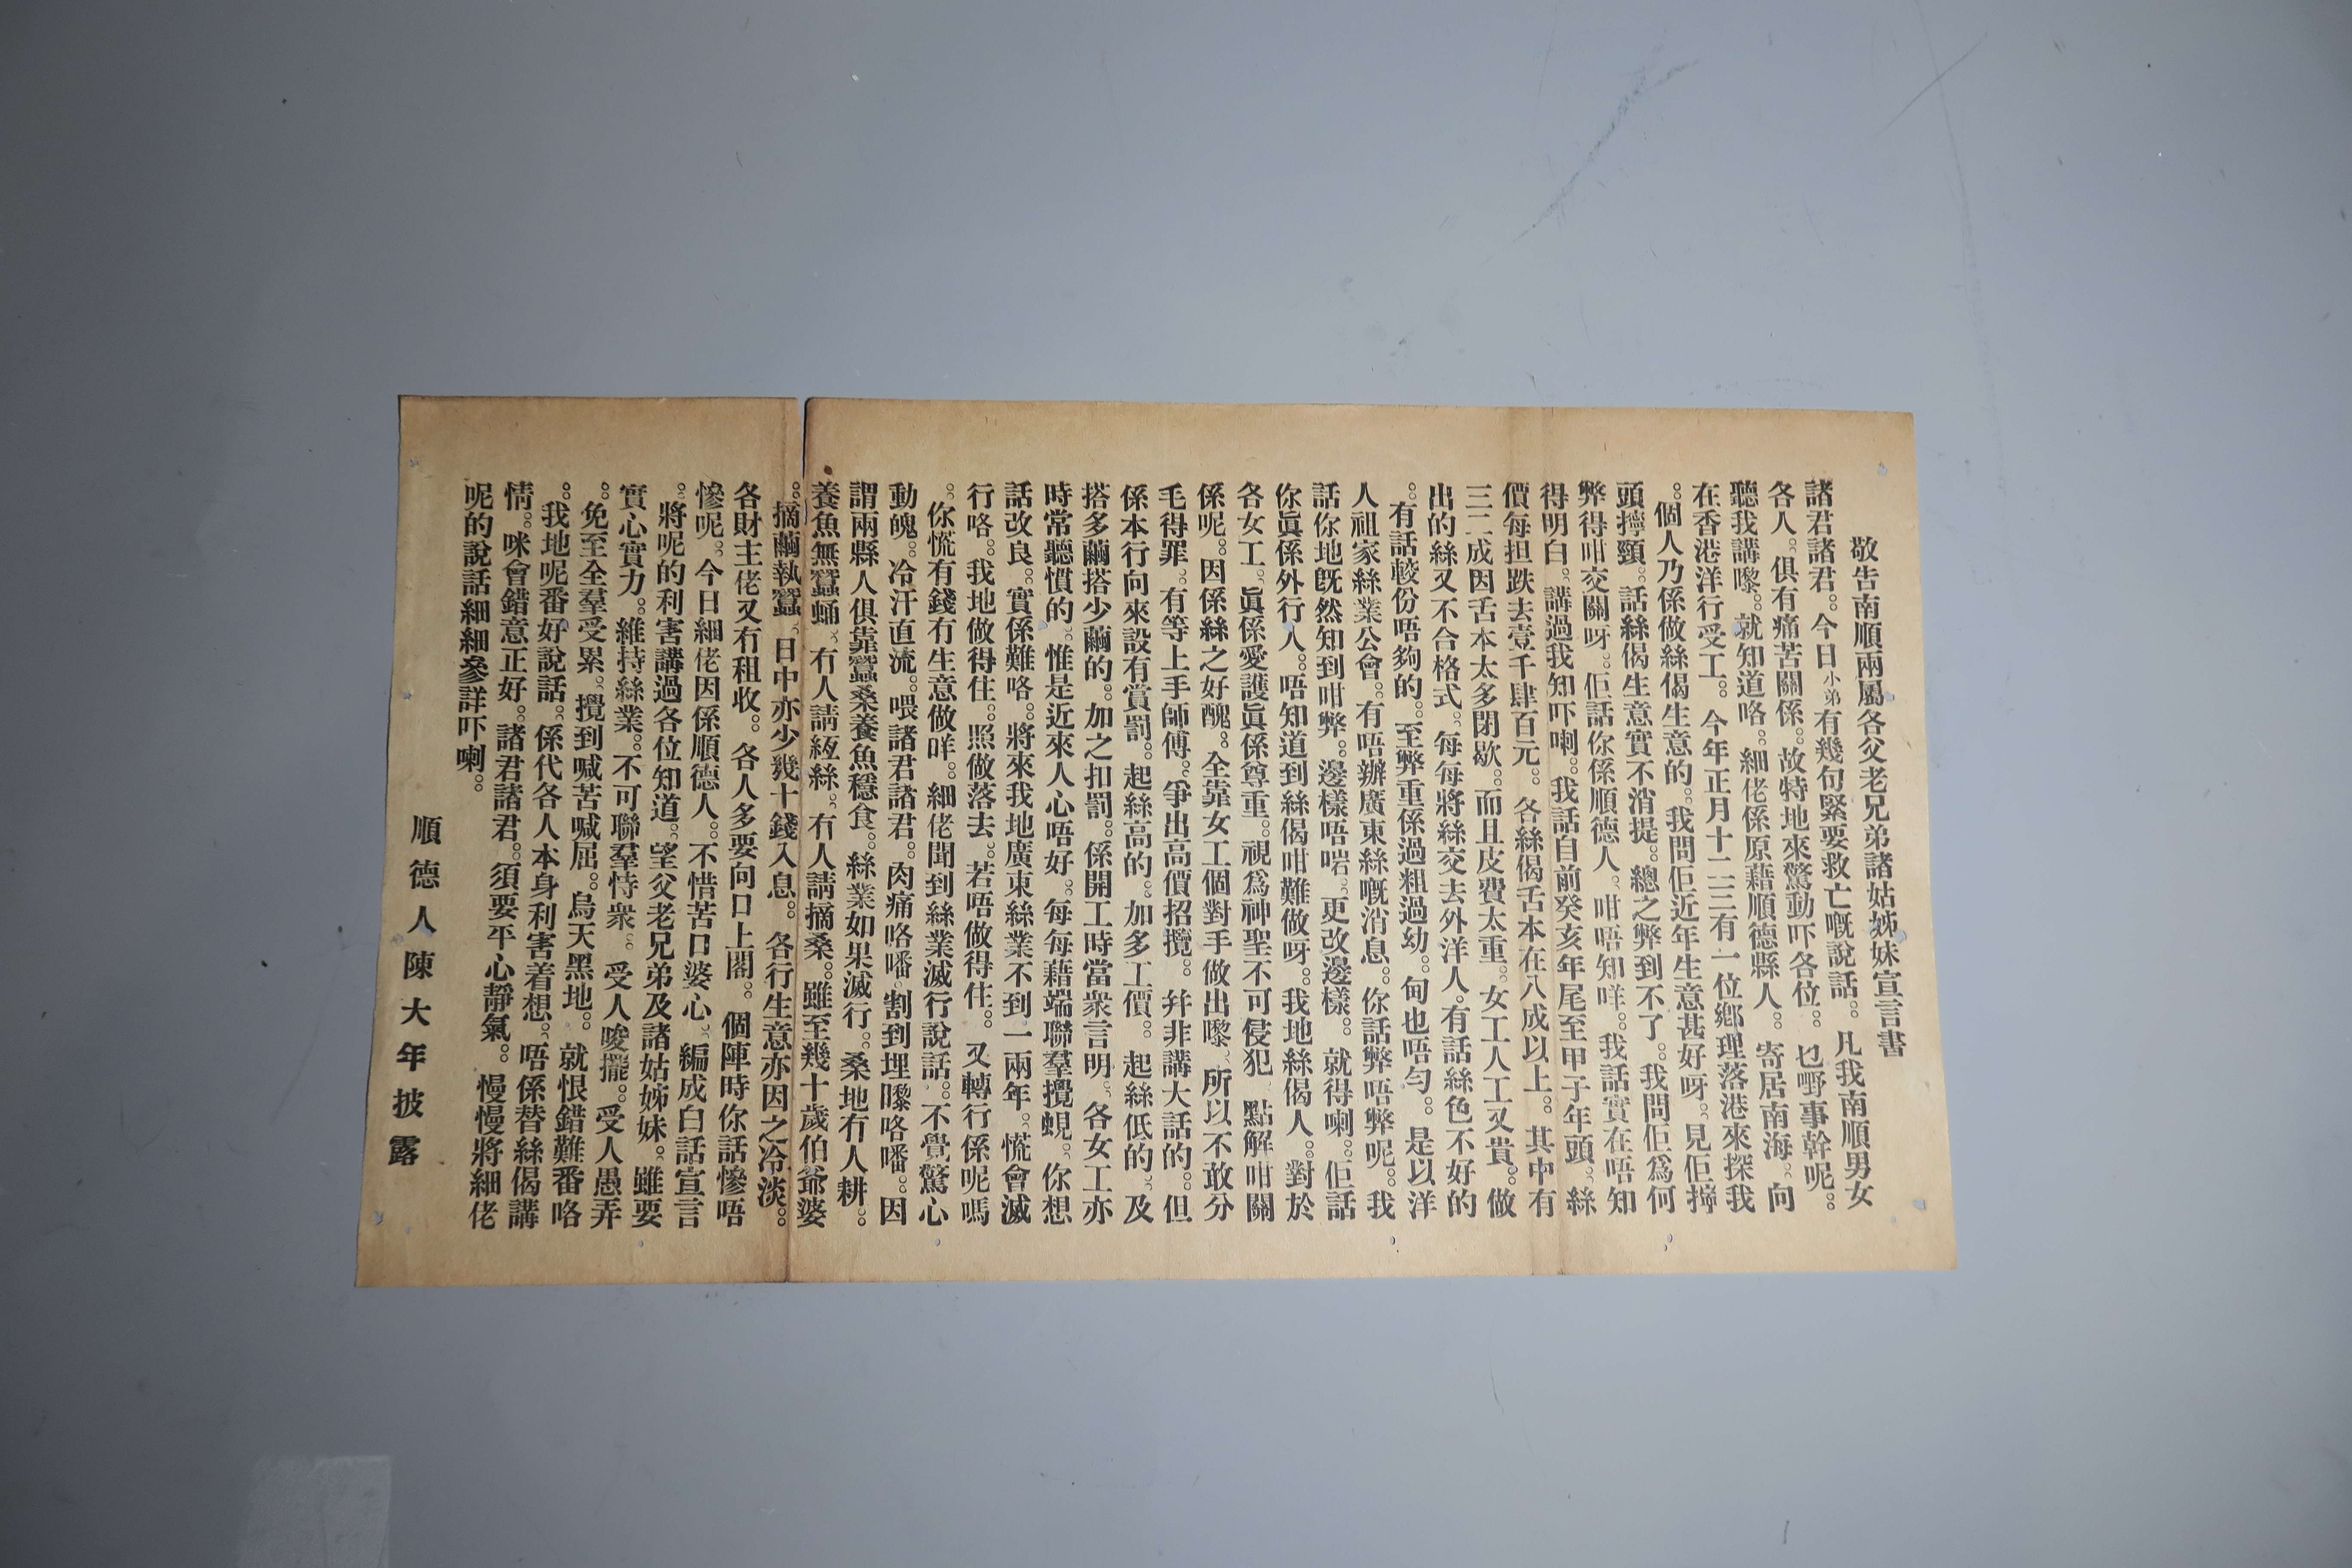 敬告南順兩屬各父老兄弟諸姑姊妹宣言書
諸君諸君。。今日小弟有幾句緊要救亡嘅說話。。凡我南順男女
各人。。俱有痛苦關係。。故特地來驚動吓各位。。乜嘢事幹呢。。
聽我講嚟。。就知道咯。。細佬係原藉順德縣人。。寄居南海。。向
在香港洋行受工。。今年正月十二三有一位鄉理落港來探我
。。個人乃係做絲偈生意的。。我問佢近年生意甚好呀。。見佢擰
頭擰頸。。話絲偈生意實不消提。。總之弊到不了。。我問佢爲何
弊得咁交關呀。。佢話你係順德人。。咁唔知咩。。我話實在唔知
得明白。。講過我知吓喇。。我話自前癸亥年尾至甲子年頭。。絲
價每担跌去壹千肆百元。。各絲偈舌本在八成以上。。其中有
三二成因舌本太多閉歇。。而且皮費太重。。女工人工又貴。。做
出的絲又不合格式。。每每將絲交去外洋人。。有話絲色不好的
。。有話較份唔夠的。。至弊重係過粗過幼。。甸也唔勻。。是以洋
人祖家絲業公會。。有唔辦廣東絲嘅消息。。你話弊唔弊呢。。我
話你地旣然知到咁弊。。邊樣唔啱。。更改邊樣。。就得喇。。佢話
你眞係外行人。。唔知道到絲偈咁難做呀。。我地絲偈人。。對於
各女工。。眞係愛護眞係尊重。。視爲神聖不可侵犯。。點解咁關
係呢。。因係絲之好醜。。全靠女工個對手做出嚟。。所以不敢分
毛得罪。。有等上手師傅。。爭出高價招攬。。幷非講大話的。。但
係本行向來設有賞罰。。起絲高的。。加多工價。。起絲低的。。及
搭多繭搭少繭的。。加之扣罰。。係開工時當衆言明。。各女工亦
時常聽慣的。。惟是近來人心唔好。。每每藉端聯羣攪蜆。。你想
話改良。。實係難咯。。將來我地廣東絲業不到一兩年。。慌會滅
行咯。。我地做得住。。照做落去。。若唔做得住。。又轉行係呢嗎
。。你慌有錢有生意做咩。。細佬聞到絲業滅行說話。。不覺驚心
動魄。。冷汗直流。。喂諸君諸君。。肉痛咯噃。。割到埋嚟咯噃。。因
謂兩縣人俱靠蠶桑養魚穩食。。絲業如果滅行。。桑地有人耕。。
養魚無蠶蛹。。冇人請絚絲。。冇人請摘桑。。雖至幾十歲伯爺婆
。。摘繭執蠶。。日中亦少幾十錢入息。。各行生意亦因之冷淡。。
各財主佬又有租收。。各人多要向口上閣。。個陣時你話慘唔
慘呢。。今日細佬因係順德人。。不惜苦口婆心。。編成白話宣言
。。將呢的利害講過各位知道。。望父老兄弟及諸姑姊妹。。雖要
實心實力。。維持絲業。。不可聯羣恃衆。。受人唆擺。。受人愚弄
。。免至全羣受累。。攪到喊苦喊屈。。烏天黑地。。就恨錯難番咯
。。我地呢番好說話。。係代各人本身利害着想。。唔係替絲偈講
情。。咪會錯意正好。。諸君諸君。。須要平心靜氣。。慢慢將細佬
呢的說話細細參詳吓喇。。
順德人陳大年披露